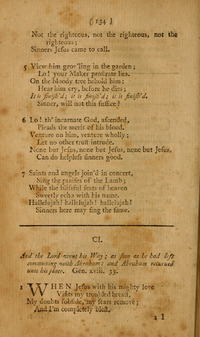 ( 134 )
Not the righteous, not the righteous, not the
righteous;
Sinners Jesus came to call.
5 View him grov'ling in the garden;
Lo! your Maker prostrate lies.
On the bloody tree behold him;
Hear him cry, before he dies;
It is finish'd; it is finish'd; it is finish'd.
Sinner, will not this suffice?
6 Lo! th' incarnate God, ascended,
Pleads the merit of his blood.
Venture on him, venture wholly;
Let no other trust intrude.
None but Jesus, none but Jesus, none but Jesus,
Can do helpless sinners good.
7 Saints and angels join'd in concert,
Sing the praises of the Lamb;
While the blissful seats of heaven
Sweetly echo with his name.
Hallelujah! hallelujah! hallelujah!
Sinners here may sing the same.
CI.
And the Lord went his Way; as soon as he had left
communing with Abraham: and Abraham returned
unto his place. Gen. xviii. 33.
1 WHEN Jesus with his mighty love
Visits my troubled breast,
My doubts subside, my fears remove;
And I'm completely blest.
2 I